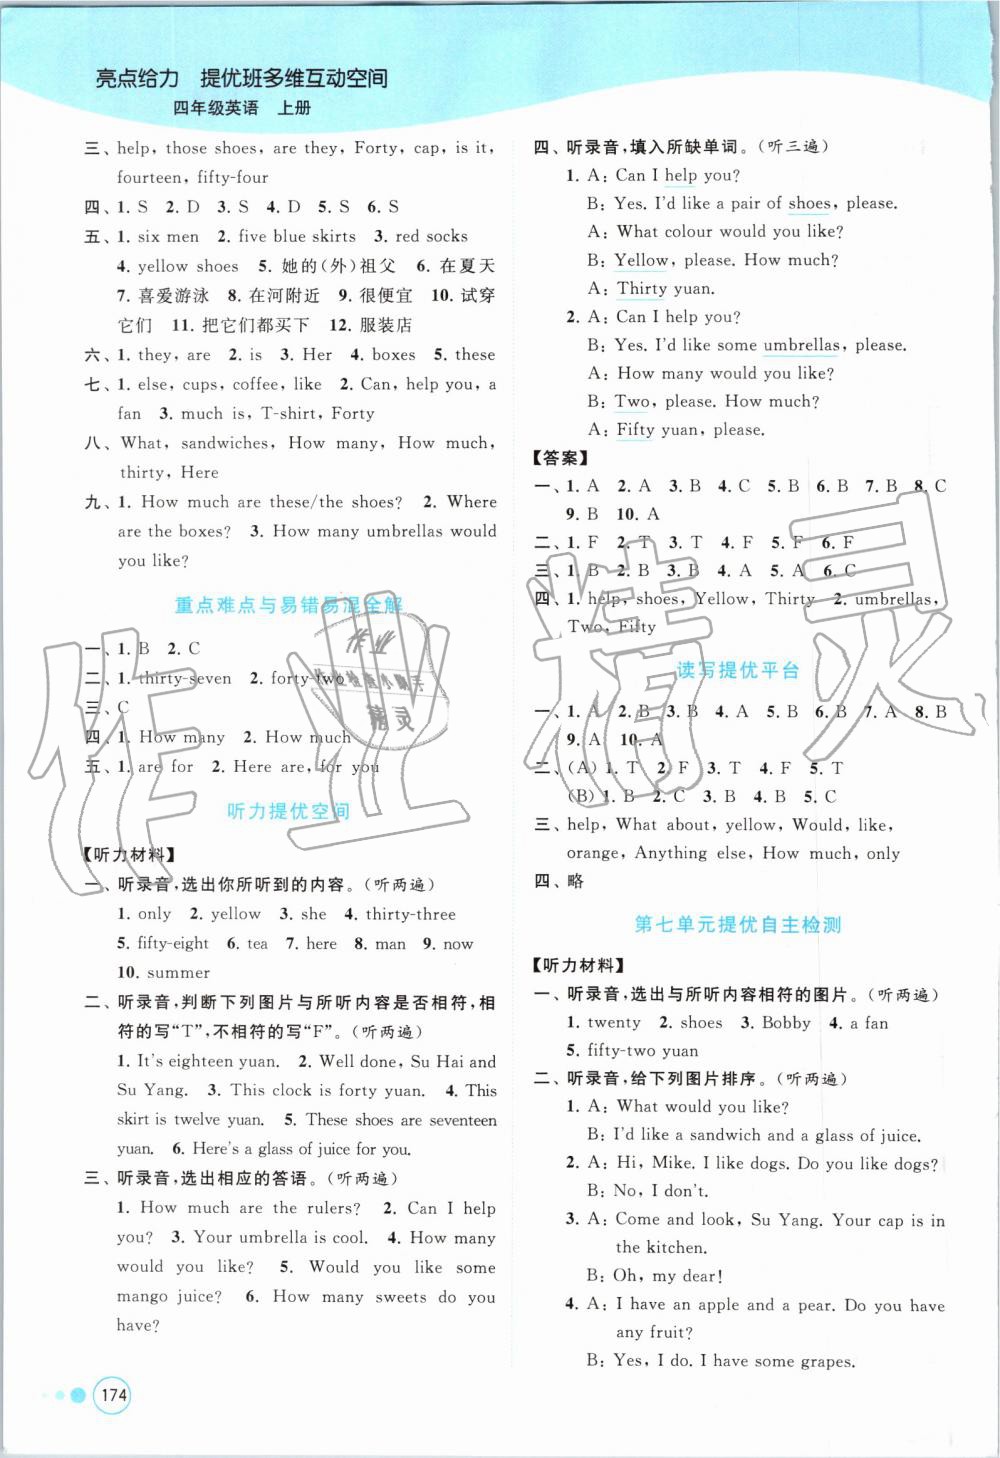 亮点给力 提优班多维互动空间
四年级英语 上册
三、help, those shoes, are they, Forty, cap, is it,
fourteen, fifty-four
四、1. S 2. D 3. S 4. D 5. S 6. S
五、1. six men 2. five blue skirts 3. red socks
4. yellow shoes 5. 她的(外)祖父 6. 在夏天
7. 喜爱游泳 8. 在河附近 9. 很便宜 10. 试穿
它们 11. 把它们都买下 12. 服装店
六、1. they, are 2. is 3. Her 4. boxes 5. these
七、1. else, cups, coffee, like 2. Can, help you, a
fan 3. much is, T-shirt, Forty
八、What, sandwiches, How many, How much,
thirty, Here
九、1. How much are these/the shoes? 2. Where
are the boxes? 3. How many umbrellas would
you like?
重点难点与易错易混全解
一、1. B 2. C
二、1. thirty-seven 2. forty-two
三、C
四、1. How many 2. How much
五、1. are for 2. Here are, for you
听力提优空间
【听力材料】
一、听录音,选出你所听到的内容。(听两遍)
1. only 2. yellow 3. she 4. thirty-three
5. fifty-eight 6. tea 7. here 8. man 9. now
10. summer
二、听录音,判断下列图片与所听内容是否相符,相
符的写“T”,不相符的写“F”。(听两遍)
1. It's eighteen yuan. 2. Well done, Su Hai and
Su Yang. 3. This clock is forty yuan. 4. This
skirt is twelve yuan. 5. These shoes are seventeen
yuan. 6. Here's a glass of juice for you.
三、听录音,选出相应的答语。(听两遍)
1. How much are the rulers? 2. Can I help
you? 3. Your umbrella is cool. 4. How many
would you like? 5. Would you like some
mango juice? 6. How many sweets do you
have?
174
四、听录音,填入所缺单词。(听三遍)
1. A: Can I help you?
B: Yes. I'd like a pair of shoes, please.
A: What colour would you like?
B: Yellow, please. How much?
A: Thirty yuan.
2. A: Can I help you?
B: Yes. I'd like some umbrellas, please.
A: How many would you like?
B: Two, please. How much?
A: Fifty yuan, please.
【答案】
一、1. A 2. A 3. B 4. C 5. B 6. B 7. B 8. C
9. B 10. A
二、1. F 2. T 3. T 4. F 5. F 6. F
三、1. B 2. B 3. A 4. A 5. A 6. C
四、1. help, shoes, Yellow, Thirty 2. umbrellas,
Two, Fifty
读写提优平台
一、1. A 2. B 3. B 4. A 5. B 6. B 7. A 8. B
9. A 10. A
二、(A) 1. T 2. F 3. T 4. F 5. T
(B) 1. B 2. C 3. A 4. B 5. C
三、help, What about, yellow, Would, like,
orange, Anything else, How much, only
四、略
第七单元提优自主检测
【听力材料】
一、听录音,选出与所听内容相符的图片。(听两遍)
1. twenty 2. shoes 3. Bobby 4. a fan
5. fifty-two yuan
二、听录音,给下列图片排序。(听两遍)
1. A: What would you like?
B: I'd like a sandwich and a glass of juice.
2. A: Hi, Mike. I like dogs. Do you like dogs?
B: No, I don't.
3. A: Come and look, Su Yang. Your cap is in
the kitchen.
B: Oh, my dear!
4. A: I have an apple and a pear. Do you have
any fruit?
B: Yes, I do. I have some grapes.
作业精灵